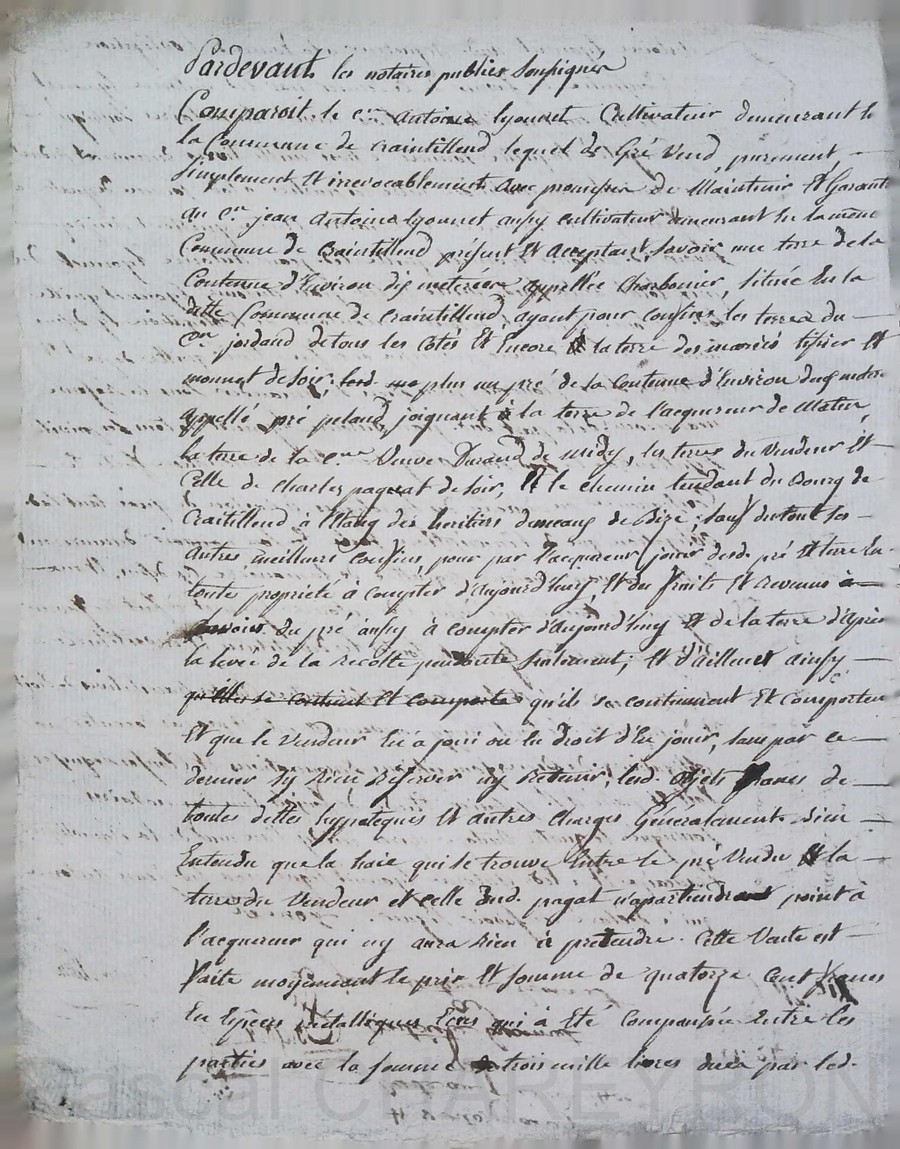 Pardevant les notaires publics soussignés
Comparoit le c.en Antoine lyonnet Cultivateur demeurant en
la Commune de craintillend lequel de Gré Vend, purement,
simplement Et irrevocablement Avec promesse de Maintenir Et Garant.
au c.en jean Antoine lyonnet aussy cultivateur demeurant en la meme
Commune de Craintillend présent Et Acceptant, Savoir une terre de la
Contenue d'Environ dix meterées appellée Charbonier, située En la
ditte Commune de Craintillend, ayant pour confins les terres du
c.en jordand de tous les cotés Et Encore la terre des mariés tissier Et
monnet de soir; plus un pré de la Contenue d'Environ
appellé pré peland, joignant à la terre de l'acquereur de Matin,
la terre de la c.ne Veuve Durand de midy, les terres du Vendeur Et
Celle de Charles pagnat de soir, Et le chemin tendant du Bourg de
Craitillend à l'Etang des heritiers de Bize, sauf du tout ses
autres meilleurs Confins, pour par l'acquereur jouir desd. pré Et terre En
toute propriété à compter d'aujourd'huy, Et des fruits Et revenus à
Savoir du pré aussy à compter d'aujourd'huy Et de la terre d'Après
la levée de la recolte pendante seulement; Et d'ailleurs ainsy
qu'elles se contient Et comporte qu'ils se continuent Et comportent
Et que le Vendeur En a joui ou eu droit d'En jouir, sans par ce
dernier sy rien réserver ny retenir; lesd. objets francs de
toutes dettes hypoteques Et autres Charges Generalement, bien
Entendu que la haie qui se trouve Entre le pré Vendu Et la
terre du Vendeur et celle dud. pagat n'apartiendra point à
l'acquereur qui ny aura rien à pretendre. Cette Vente est
faite moyennant le prix Et somme de quatorze Cent francs
En Espèces métalliques Ecus qui à Eté Compensée Entre les
parties avec la somme de trois mille livres dues par led.
Pascal CHAREYRON